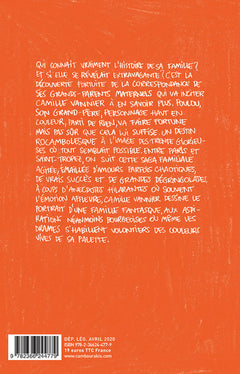 QUI CONNAÎT VRAIMENT L'HISTOIRE DE SA FAMILLE ?
ET SI ELLE SE RÉVÉLAIT EXTRAVAGANTE ? C'EST LA
DÉCOUVERTE FORTUITE DE LA CORRESPONDANCE
DE SES GRANDS-PARENTS MATERNELS QUI VA INCITER
CAMILLE VANNIER À EN SAVOIR PLUS. POULOU,
SON GRAND-PÈRE, PERSONNAGE HAUT EN
COULEUR, PARTI DE RIEN, VA FAIRE FORTUNE
MAIS PAS SÛR QUE CELA LUI SUFFISE. UN DESTIN
ROCAMBOLESQUE À L'IMAGE DES TRENTE GLORIEU-
SES OÙ TOUT SEMBLAIT POSSIBLE. ENTRE PARIS ET
SAINT-TROPEZ, ON SUIT CETTE SAGA FAMILIALE
AGITÉE, ÉMAILLÉE D'AMOURS PARFOIS CHAOTIQUES,
DE VRAIS SUCCÈS ET DE GRANDES DÉGRINGOLADES.
À COUPS D'ANECDOTES HILARANTES OÙ SOUVENT
L'ÉMOTION AFFLEURE, CAMILLE VANNIER DESSINE LE
PORTRAIT D'UNE FAMILLE FANTASQUE, AUX ASPI-
RATIONS NÉANMOINS BOURGEOISES OÙ MÊME LES
DRAMES S'HABILLENT VOLONTIERS DES COULEURS
VIVES DE SA PALETTE.
DÉP. LÉG. AVRIL 2020
ISBN 978-2-36624-477-9
19 euros TTC France
www.cambourakis.com
9782366244779